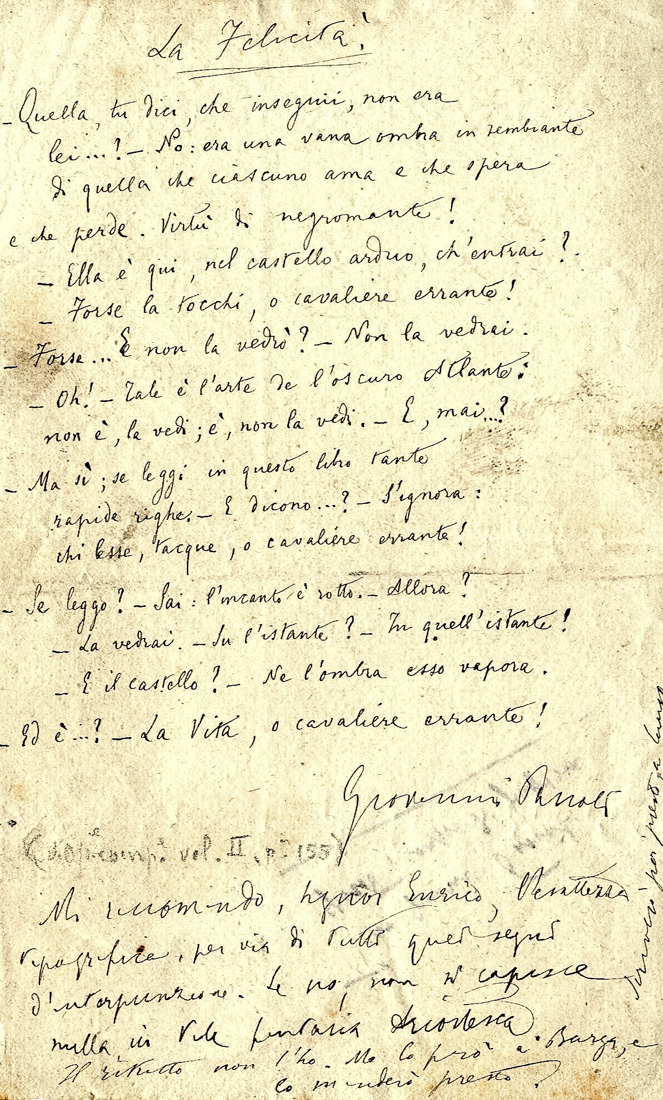 La Felicità
- Quella, tu dici, che inseguii, non era
lei...? - No: era una vana ombra in sembiante
di quella che ciascuno ama e che spera
e che perde. Virtù di negromante!
- Ella è qui, nel castello arduo, ch'entrai?
- Forse la tocchi, o cavaliere errante!
- Forse... E non la vedrò? - Non la vedrai.
- Oh! - Tale è l'arte de l'oscuro Atlante:
non è, la vedi; è, non la vedi. - E, mai...?
- Ma sì; se leggi in questo libro tante
rapide righe. - E dicono...? - S'ignora:
chi lesse, tacque, o cavaliere errante!
- Se leggo? - Sai: l'incanto è rotto. - Allora?
- La vedrai. - Su l'istante? - In quell'istante!
- E il castello? - Ne l'ombra esso vapora.
- Ed è...? - La Vita, o cavaliere errante!
Giovanni Pascoli
vol. II, p. 155
Mi raccomando, signor Enrico, l'esattezza
tipografica, per via di tutti quei segni
d'interpunzione. Se no, non si capisce
nulla in tale fantasia Ariostesca
Il ritratto non l'ho. Ma lo però a Barga, e
lo manderò presto.